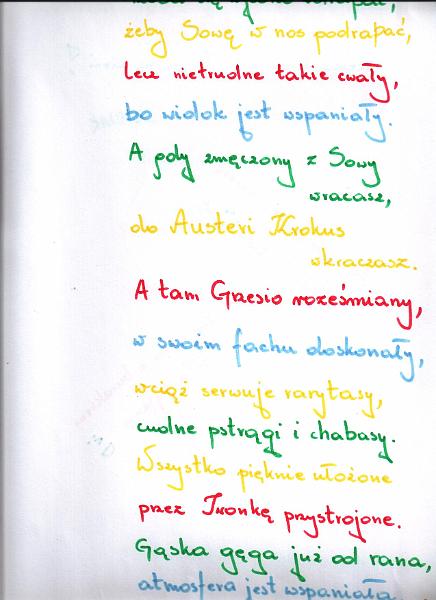 żeby Sowę w nos podrapać,
lecz nietrudne takie cwały,
bo widok jest wspaniały.
A gdy zmęczony z Sowy
wracasz,
do Austeri Krokus
wkraczasz.
A tam Grzesio roześmiany,
w swoim fachu doskonały,
wciąż serwuje rarytasy,
cudne pstrągi i chabasy.
Wszystko pięknie ułożone
przez Iwonkę przystrojone.
Gąska gęga już od rana,
atmosfera jest wspaniała.